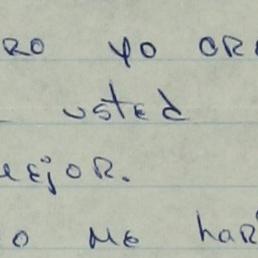 RO yo CRE
usted
MEjOR.
O ME haR